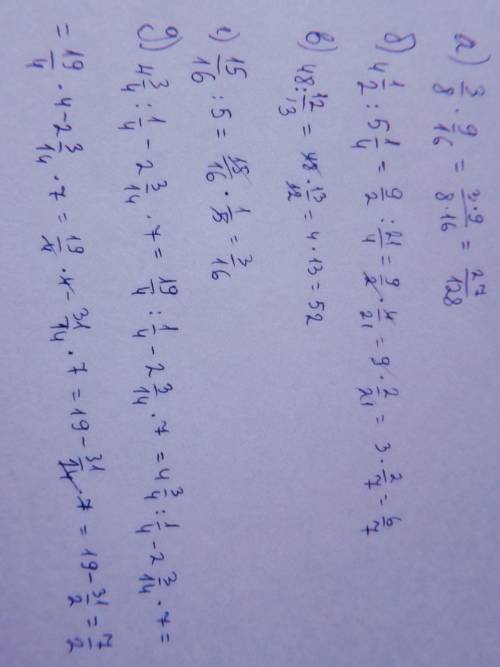 а) 3/8 · 9/16 = 3·9/8·16 = 27/128
б) 4 1/2 : 5 1/4 = 9/2 : 21/4 = 9/2 · 4/21 = 9 · 2/21 = 3 · 2/7 = 6/7
в) 48 : 12/13 = 48 · 13/12 = 4 · 13 = 52
г) 15/16 : 5 = 15/16 · 1/5 = 3/16
д) 4 3/4 : 1/4 − 2 3/14 · 7 = 19/4 : 1/4 − 2 3/14 · 7 = 4 3/4 : 1/4 − 2 3/14 · 7 =
= 19/4 · 4 − 2 3/14 · 7 = 19/4 · 4 − 31/14 · 7 = 19 − 31/14 · 7 = 19 − 31/2 = 7/2